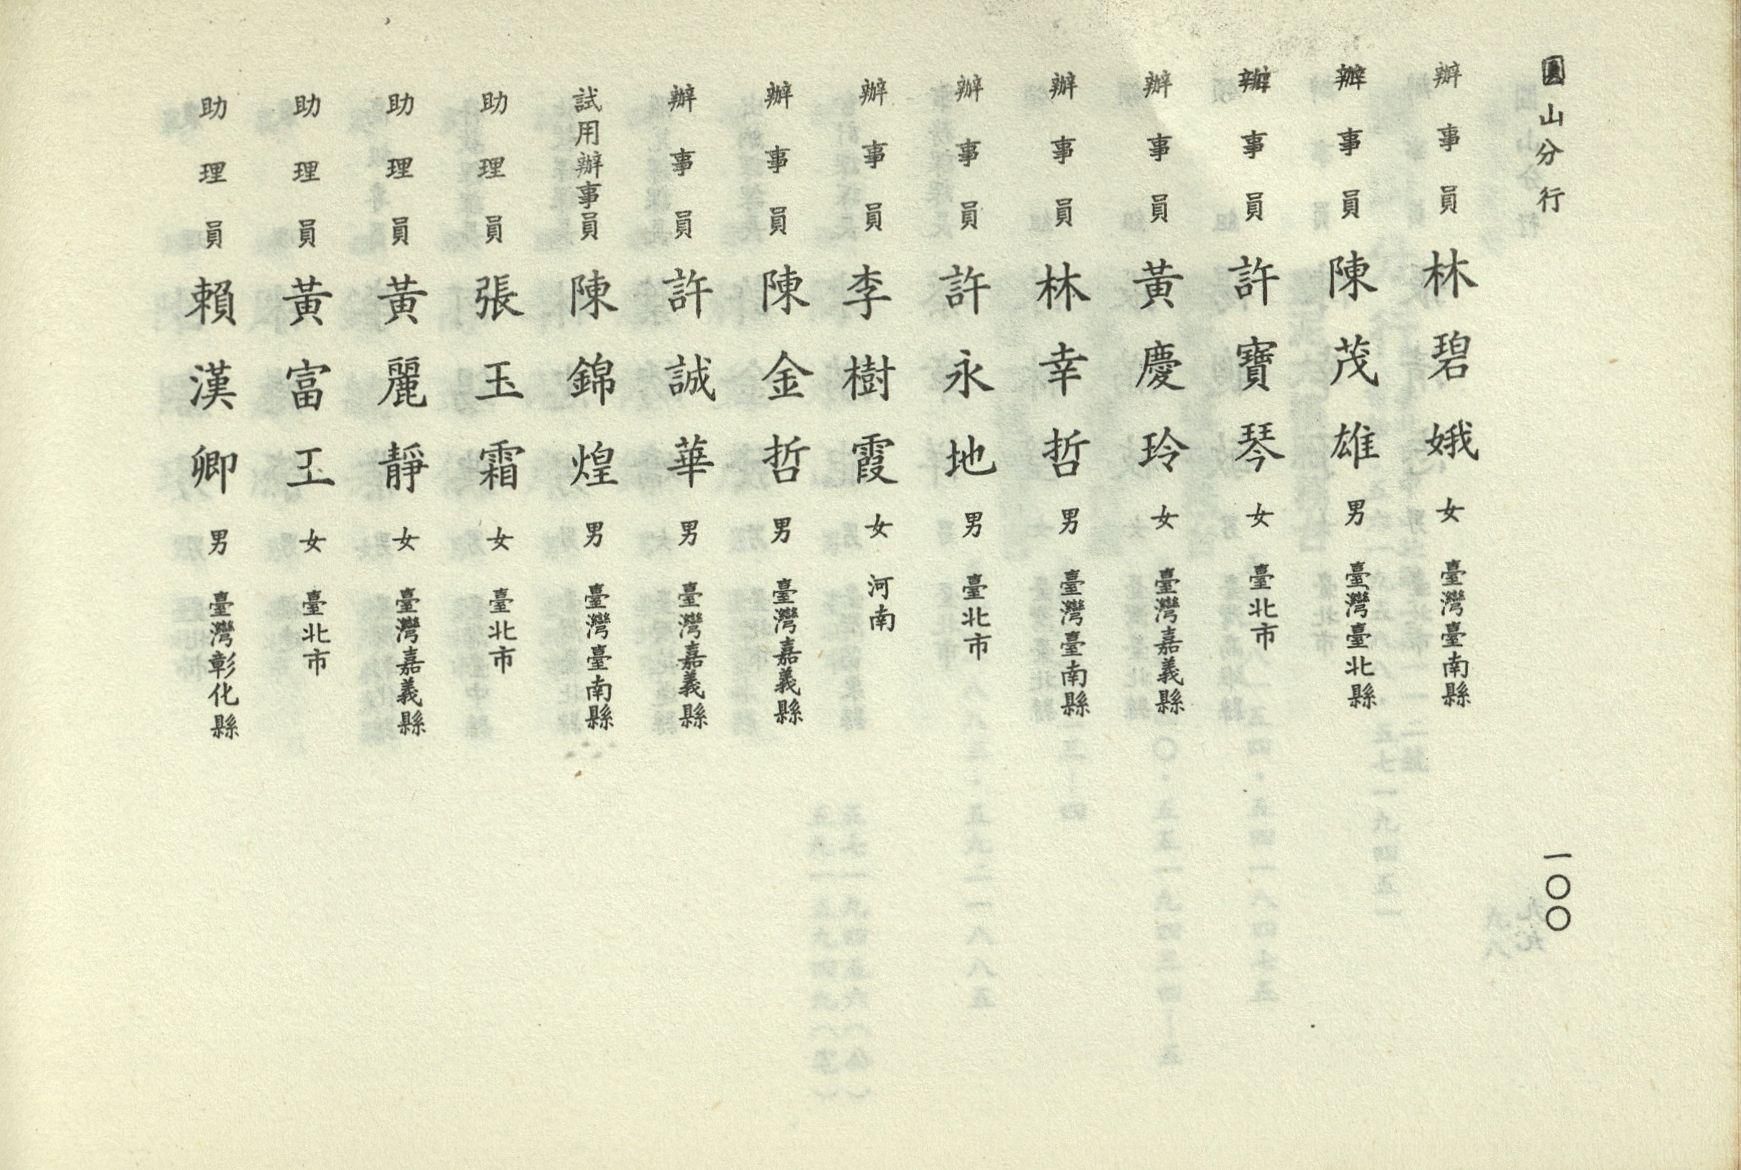 圓山分行
一〇〇
辦事員 林碧娥 女 臺灣臺南縣
辦事員 陳茂雄 男 臺灣臺北縣
辦事員 許寶琴 女 臺北市
辦事員 黃慶玲 女 臺灣嘉義縣
辦事員 林幸哲 男 臺灣臺南縣
辦事員 許永地 男 臺北市
辦事員 李樹霞 女 河南
辦事員 陳金哲 男 臺灣嘉義縣
辦事員 許誠華 男 臺灣嘉義縣
試用辦事員 陳錦煌 男 臺灣臺南縣
助理員 張玉霜 女 臺北市
助理員 黃麗靜 女 臺灣嘉義縣
助理員 黃富玉 女 臺北市
助理員 賴漢卿 男 臺灣彰化縣